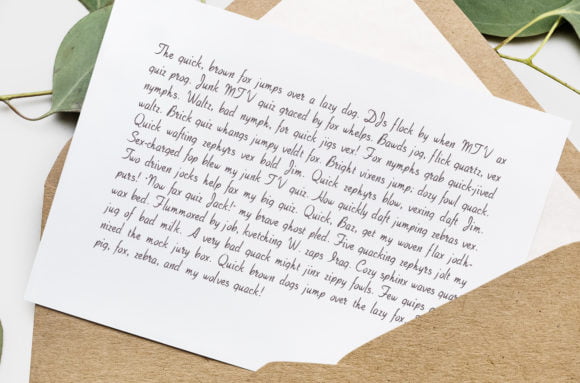 The quick, brown fox jumps over a lazy dog. DJs flock by when MTV ax
quiz prog. Junk MTV quiz graced by fox whelps. Bawds jog, flick quartz, vex
nymphs. Waltz, bad nymph, for quick jigs vex! Fox nymphs grab quick-jived
waltz. Brick quiz whangs jumpy veldt fox. Bright vixens jump; dozy fowl quack.
Quick wafting zephyrs vex bold Jim. Quick zephyrs blow, vexing daft Jim.
Sex-charged fop blew my junk TV quiz. How quickly daft jumping zebras vex.
Two driven jocks help fax my big quiz. Quick, Baz, get my woven flax jodh-
purs! "Now fax quiz Jack!" my brave ghost pled. Five quacking zephyrs jolt my
wax bed. Flummoxed by job, kvetching W. zaps Iraq. Cozy sphinx waves
jug of bad milk. A very bad quack might jinx zippy fowls. Few quips
nized the mock jury box. Quick brown dogs jump over the lazy fox.
pig, fox, zebra, and my wolves quack!